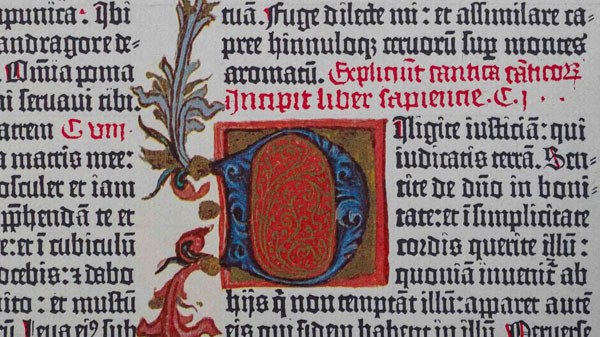 punica: Ibi
andragore de-
. Om̄ia poma
ni seruaui tibi.
atrem C viii
a matris mee:
osculer et iam
pp̄hendā te et
e: et ī cubiculū
ocebis: ⁊ dabo
ito: et mustū
rū Leua ei⁹ sub
tuā. Fuge dilecte mi: et assimilare ca-
pree hinnuloqꝫ ceruorū suꝑ montes
aromatū. Expliciūt cantica cāticoꝝ
Incipit liber sapiencie. C. I
Diligite iusticiā: qui
iudicatis terrā. Sen-
tite de dn̄o in boni-
tate: et ī simplicitate
cordis querite illū:
quoniā inuenit᷑ ab
hijs q̄ non temptāt illū: apparet autē
eis qui fidem habent in illū Peruerse